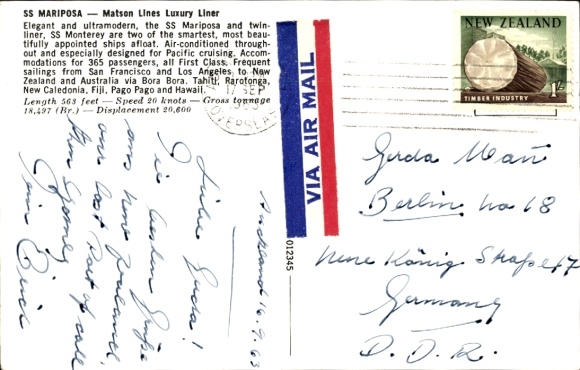 SS MARIPOSA — Matson Lines Luxury Liner
Elegant and ultramodern, the SS Mariposa and twin-
liner, SS Monterey are two of the smartest, most beau-
tifully appointed ships afloat. Air-conditioned through-
out and especially designed for Pacific cruising. Accom-
modations for 365 passengers, all First Class. Frequent
sailings from San Francisco and Los Angeles to New
Zealand and Australia via Bora Bora, Tahiti, Rarotonga,
New Caledonia, Fiji, Pago Pago and Hawaii.
Length 563 feet — Speed 20 knots — Gross tonnage
18,497 (Br.) — Displacement 20,600
17 SEP
OVERSEAS
NEW ZEALAND
TIMBER INDUSTRY
1/-
VIA AIR MAIL
012345
Auckland 16.9.63
Liebe Gerda!
die besten Grüße
aus New Zealand,
our last Port of call
from Sydney
Dein Erich
Gerda Mann
Berlin No 18
Neue König Straße 17
Germany
D. D. R.